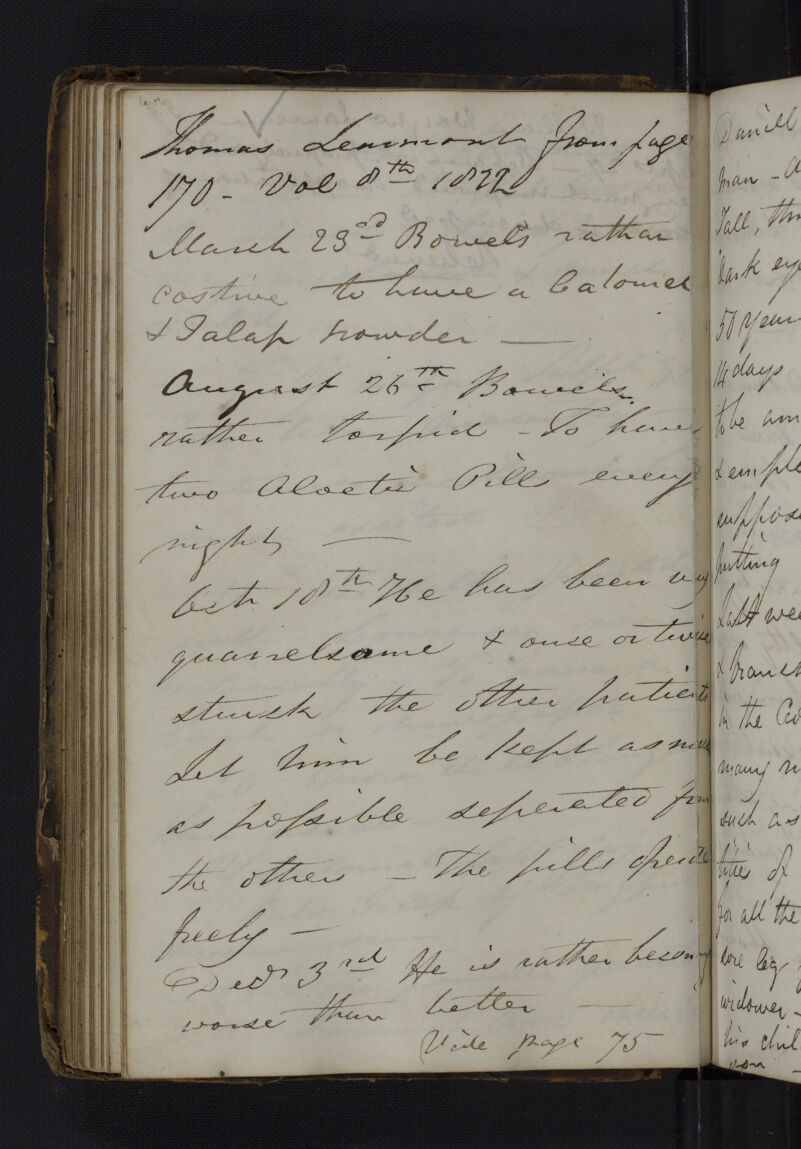 Thomas Learmont from page
170 - Vol 8th 1822
March 23rd Bowels rather
costive to have a Calomel
& Jalap powder —
August 26th Bowels
rather torpid - To have
two Aloetic Pills every
night —
Octr 18th He has been very
quarrelsome & once or twice
struck the other patients
Let him be kept as much
as possible seperated from
the other — The pills operate
freely —
Decr 3rd He is rather becoming
worse than better —
Vide page 75
Daniell
man - a
Tall, thin
dark eye
50 years
14 days
to be
& emplo
suppose
putting
Last wee
in the
many
such as
of
for all the
sore leg
widower -
his chil